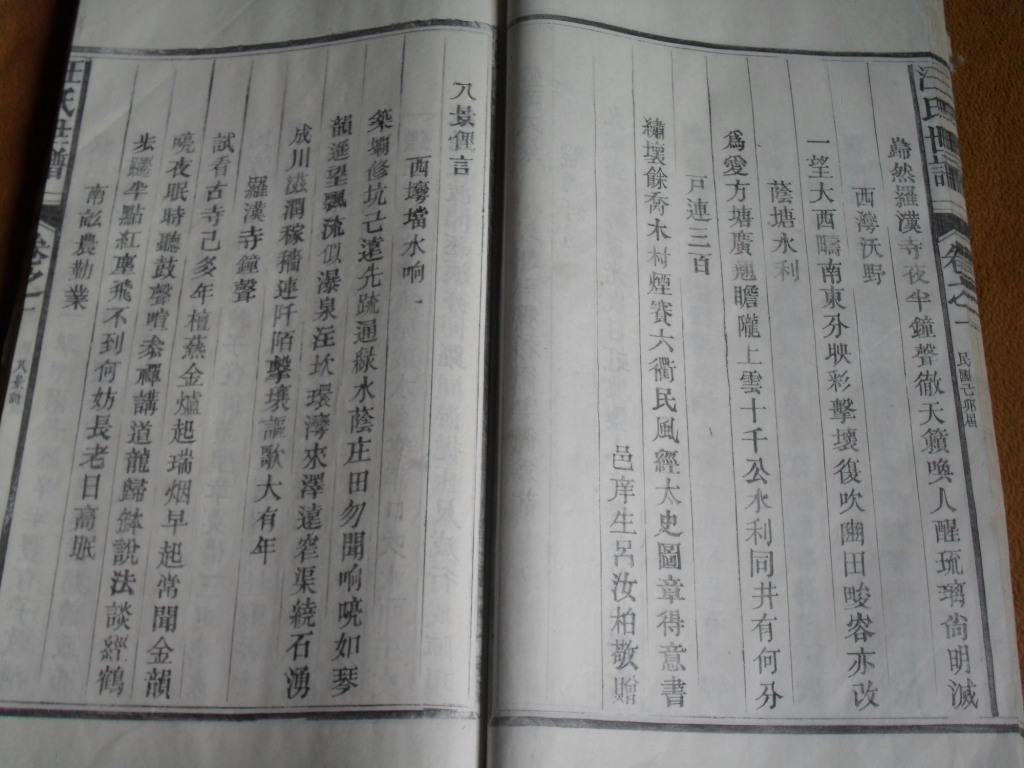 汪氏世譜
卷之一
民國己卯届
巋然羅漢寺夜半鐘聲徹天籟喚人醒琉璃尙明滅
西灣沃野
一望大酉疇南東分映彩擊壤復吹豳田畯峉亦改
蔭塘水利
爲愛方塘廣翹瞻隴上雲十千公水利同井有何分
戸連三百
繡壤餘喬木村煙賽六衢民風經太史圖章得意書
邑庠生呂汝柏敬贈
八景俚言
西塝壋水响
築壩修坑已遠先疏通綠水蔭庄田勿聞响喨如琴
韻遙望飄流似瀑泉注坎環灣來澤遠窄渠繞石湧
成川滋潤稼穡連阡陌擊壤謳歌大有年
羅漢寺鐘聲
試看古寺己多年檀蕉金爐起瑞烟早起常聞金韻
喨夜眠時聽鼓聲喧叅禪講道龍歸鉢說法談經鶴
步躧半點紅塵飛不到何妨長老日高眠
南畝農勤業
汪氏世譜
卷之一